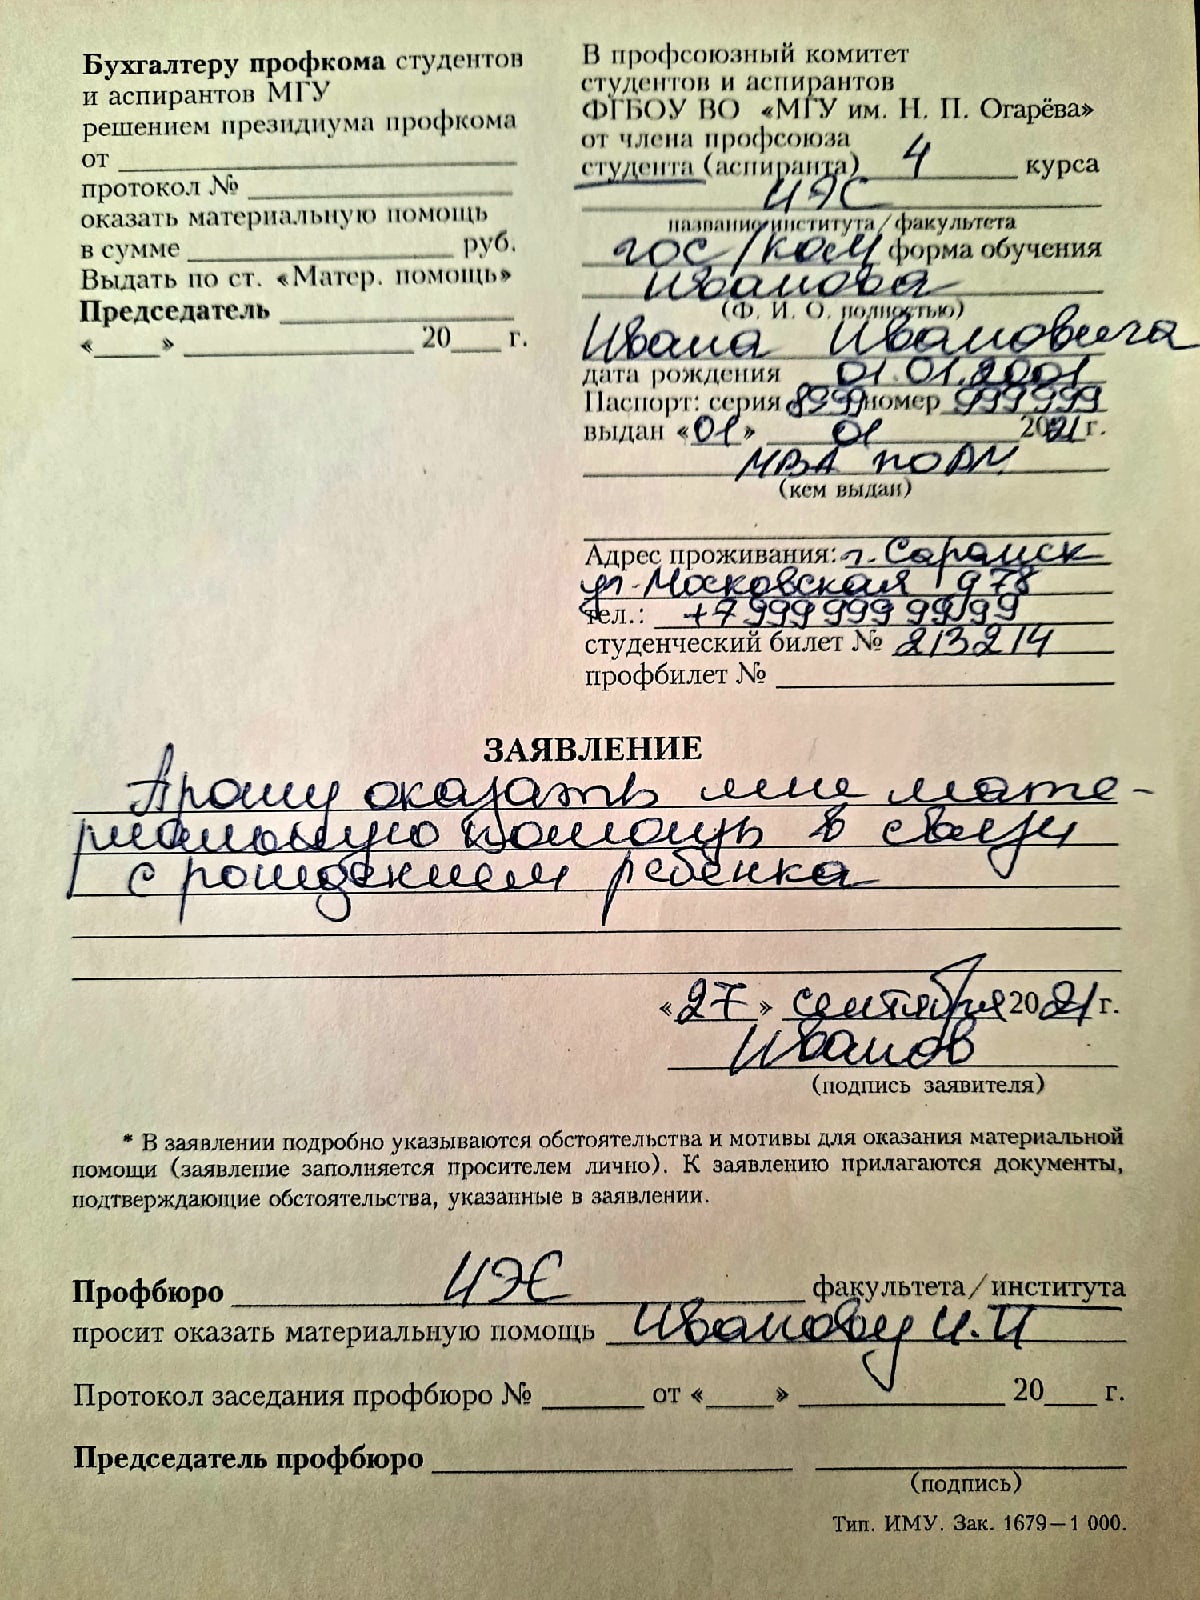 Бухгалтеру профкома студентов
и аспирантов МГУ
решением президиума профкома
от
протокол №
оказать материальную помощь
в сумме руб.
Выдать по ст. «Матер. помощь»
Председатель
« » 20 г.
В профсоюзный комитет
студентов и аспирантов
ФГБОУ ВО «МГУ им. Н. П. Огарёва»
от члена профсоюза
студента (аспиранта) 4 курса
ИЭС
название института/факультета
гос/ком форма обучения
Иванова
(Ф. И. О. полностью)
Ивана Ивановича
дата рождения 01.01.2001
Паспорт: серия 8999 номер 999999
выдан «01» 01 2021 г.
МВД по РМ
(кем выдан)
Адрес проживания: г. Саранск
ул. Московская д 78
тел.: +7 999 999 99 99
студенческий билет № 213214
профбилет №
ЗАЯВЛЕНИЕ
Прошу оказать мне мате-
риальную помощь в связи
с рождением ребёнка
«27» сентября 2021 г.
Иванов
(подпись заявителя)
* В заявлении подробно указываются обстоятельства и мотивы для оказания материальной
помощи (заявление заполняется просителем лично). К заявлению прилагаются документы,
подтверждающие обстоятельства, указанные в заявлении.
Профбюро ИЭС факультета/института
просит оказать материальную помощь Иванову И.И
Протокол заседания профбюро № от « » 20 г.
Председатель профбюро
(подпись)
Тип. ИМУ. Зак. 1679—1 000.